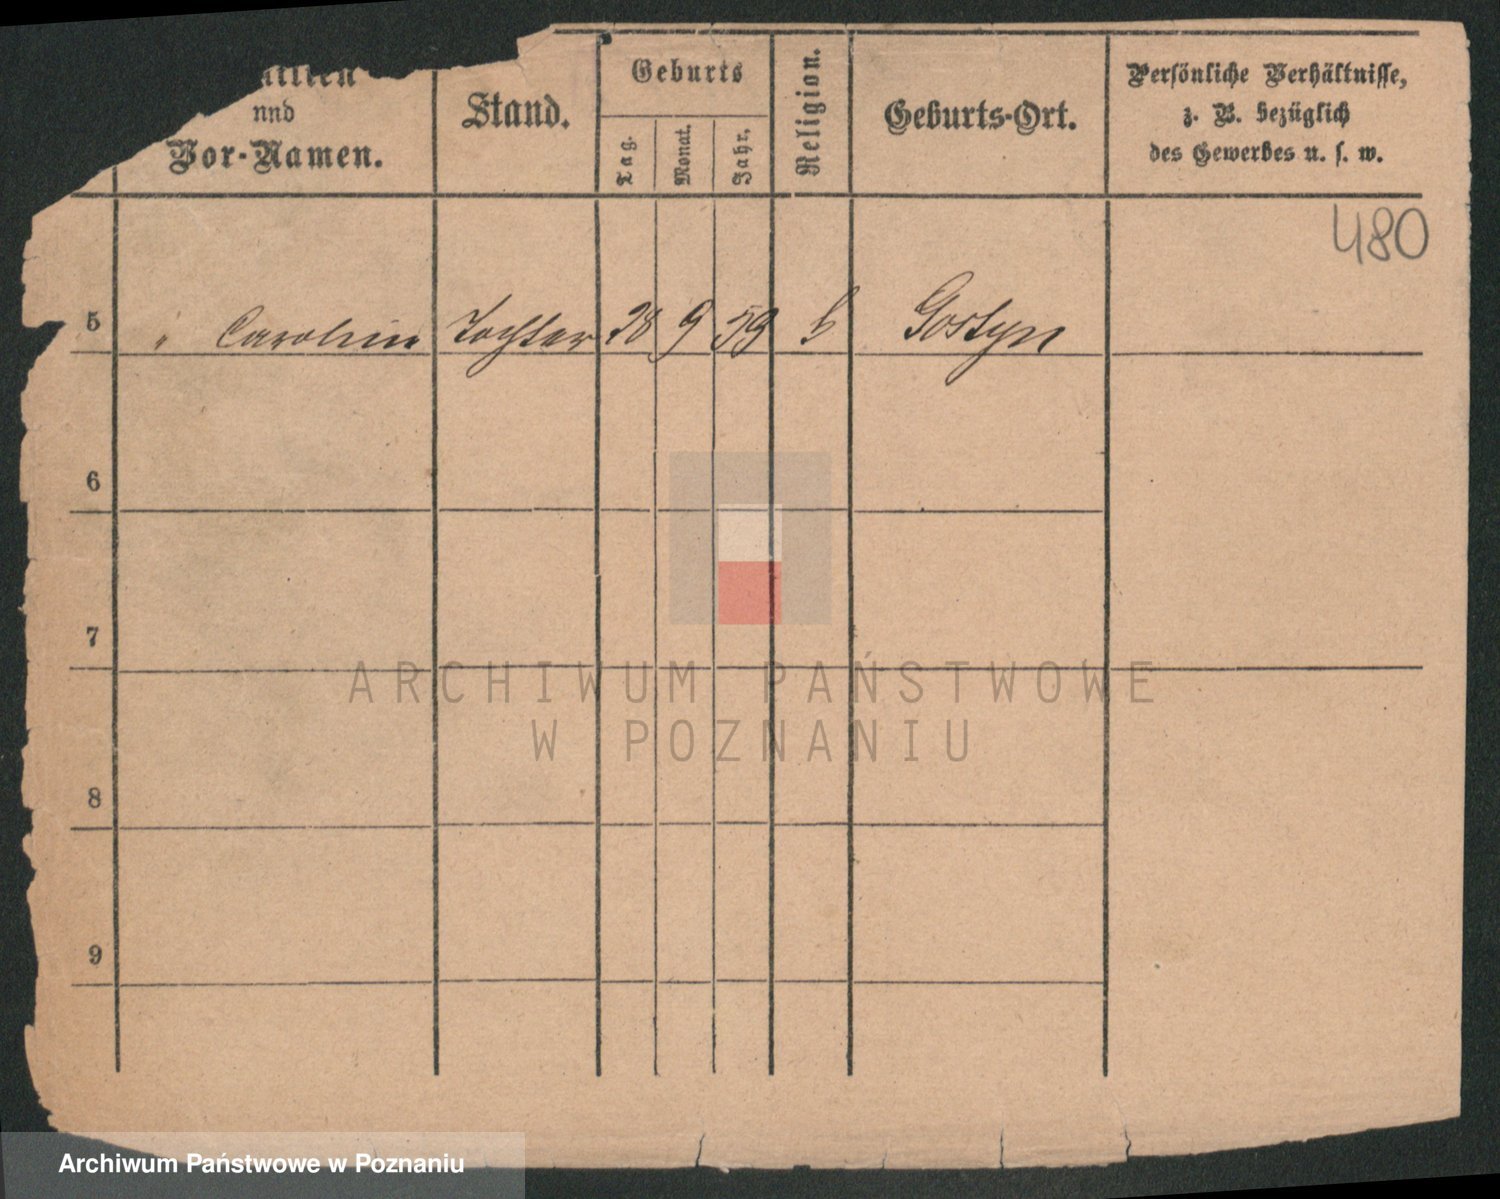 und
Vor-Namen.
Stand.
Geburts
Tag.
Monat.
Jahr.
Religion.
Geburts-Ort.
Persönliche Verhältnisse,
z. B. bezüglich
des Gewerbes u. s. w.
480
5 " Carolina Tochter 28 9 59 Gostyn
6
7
8
9
ARCHIWUM PAŃSTWOWE
W POZNANIU
Archiwum Państwowe w Poznaniu